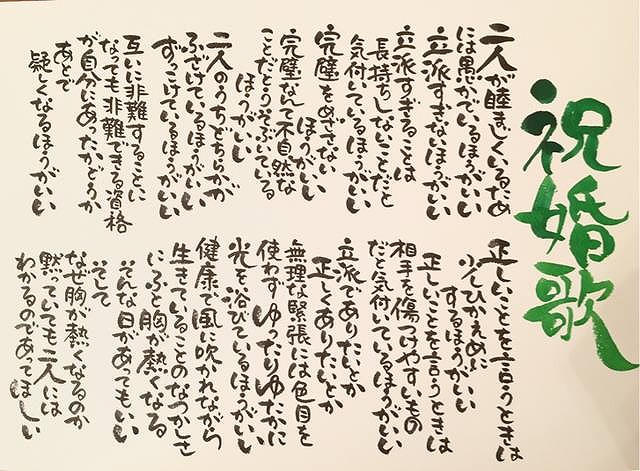 祝婚歌
二人が睦まじくいるため
には愚かでいるほうがいい
立派すぎないほうがいい
立派すぎることは
長持ちしないことだと
気付いているほうがいい
完璧をめざさない
ほうがいい
完璧なんて不自然な
ことだとうそぶいている
ほうがいい
二人のうちどちらかが
ふざけているほうがいい
ずっこけているほうがいい
互いに非難することに
なっても非難できる資格
が自分にあったかどうか
あとで
疑くなるほうがいい
正しいことを言うときは
少しひかえめに
するほうがいい
正しいことを言うときは
相手を傷つけやすいもの
だと気付いているほうがいい
立派でありたいとか
正しくありたいとか
無理な緊張には色目を
使わずゆったりゆたかに
光を浴びているほうがいい
健康で風に吹かれながら
生きていることのなつかしさ
にふと胸が熱くなる
そんな日があてもいい
そして
なぜ胸が熱くなるのか
黙っていても二人には
わかるのであてほしい